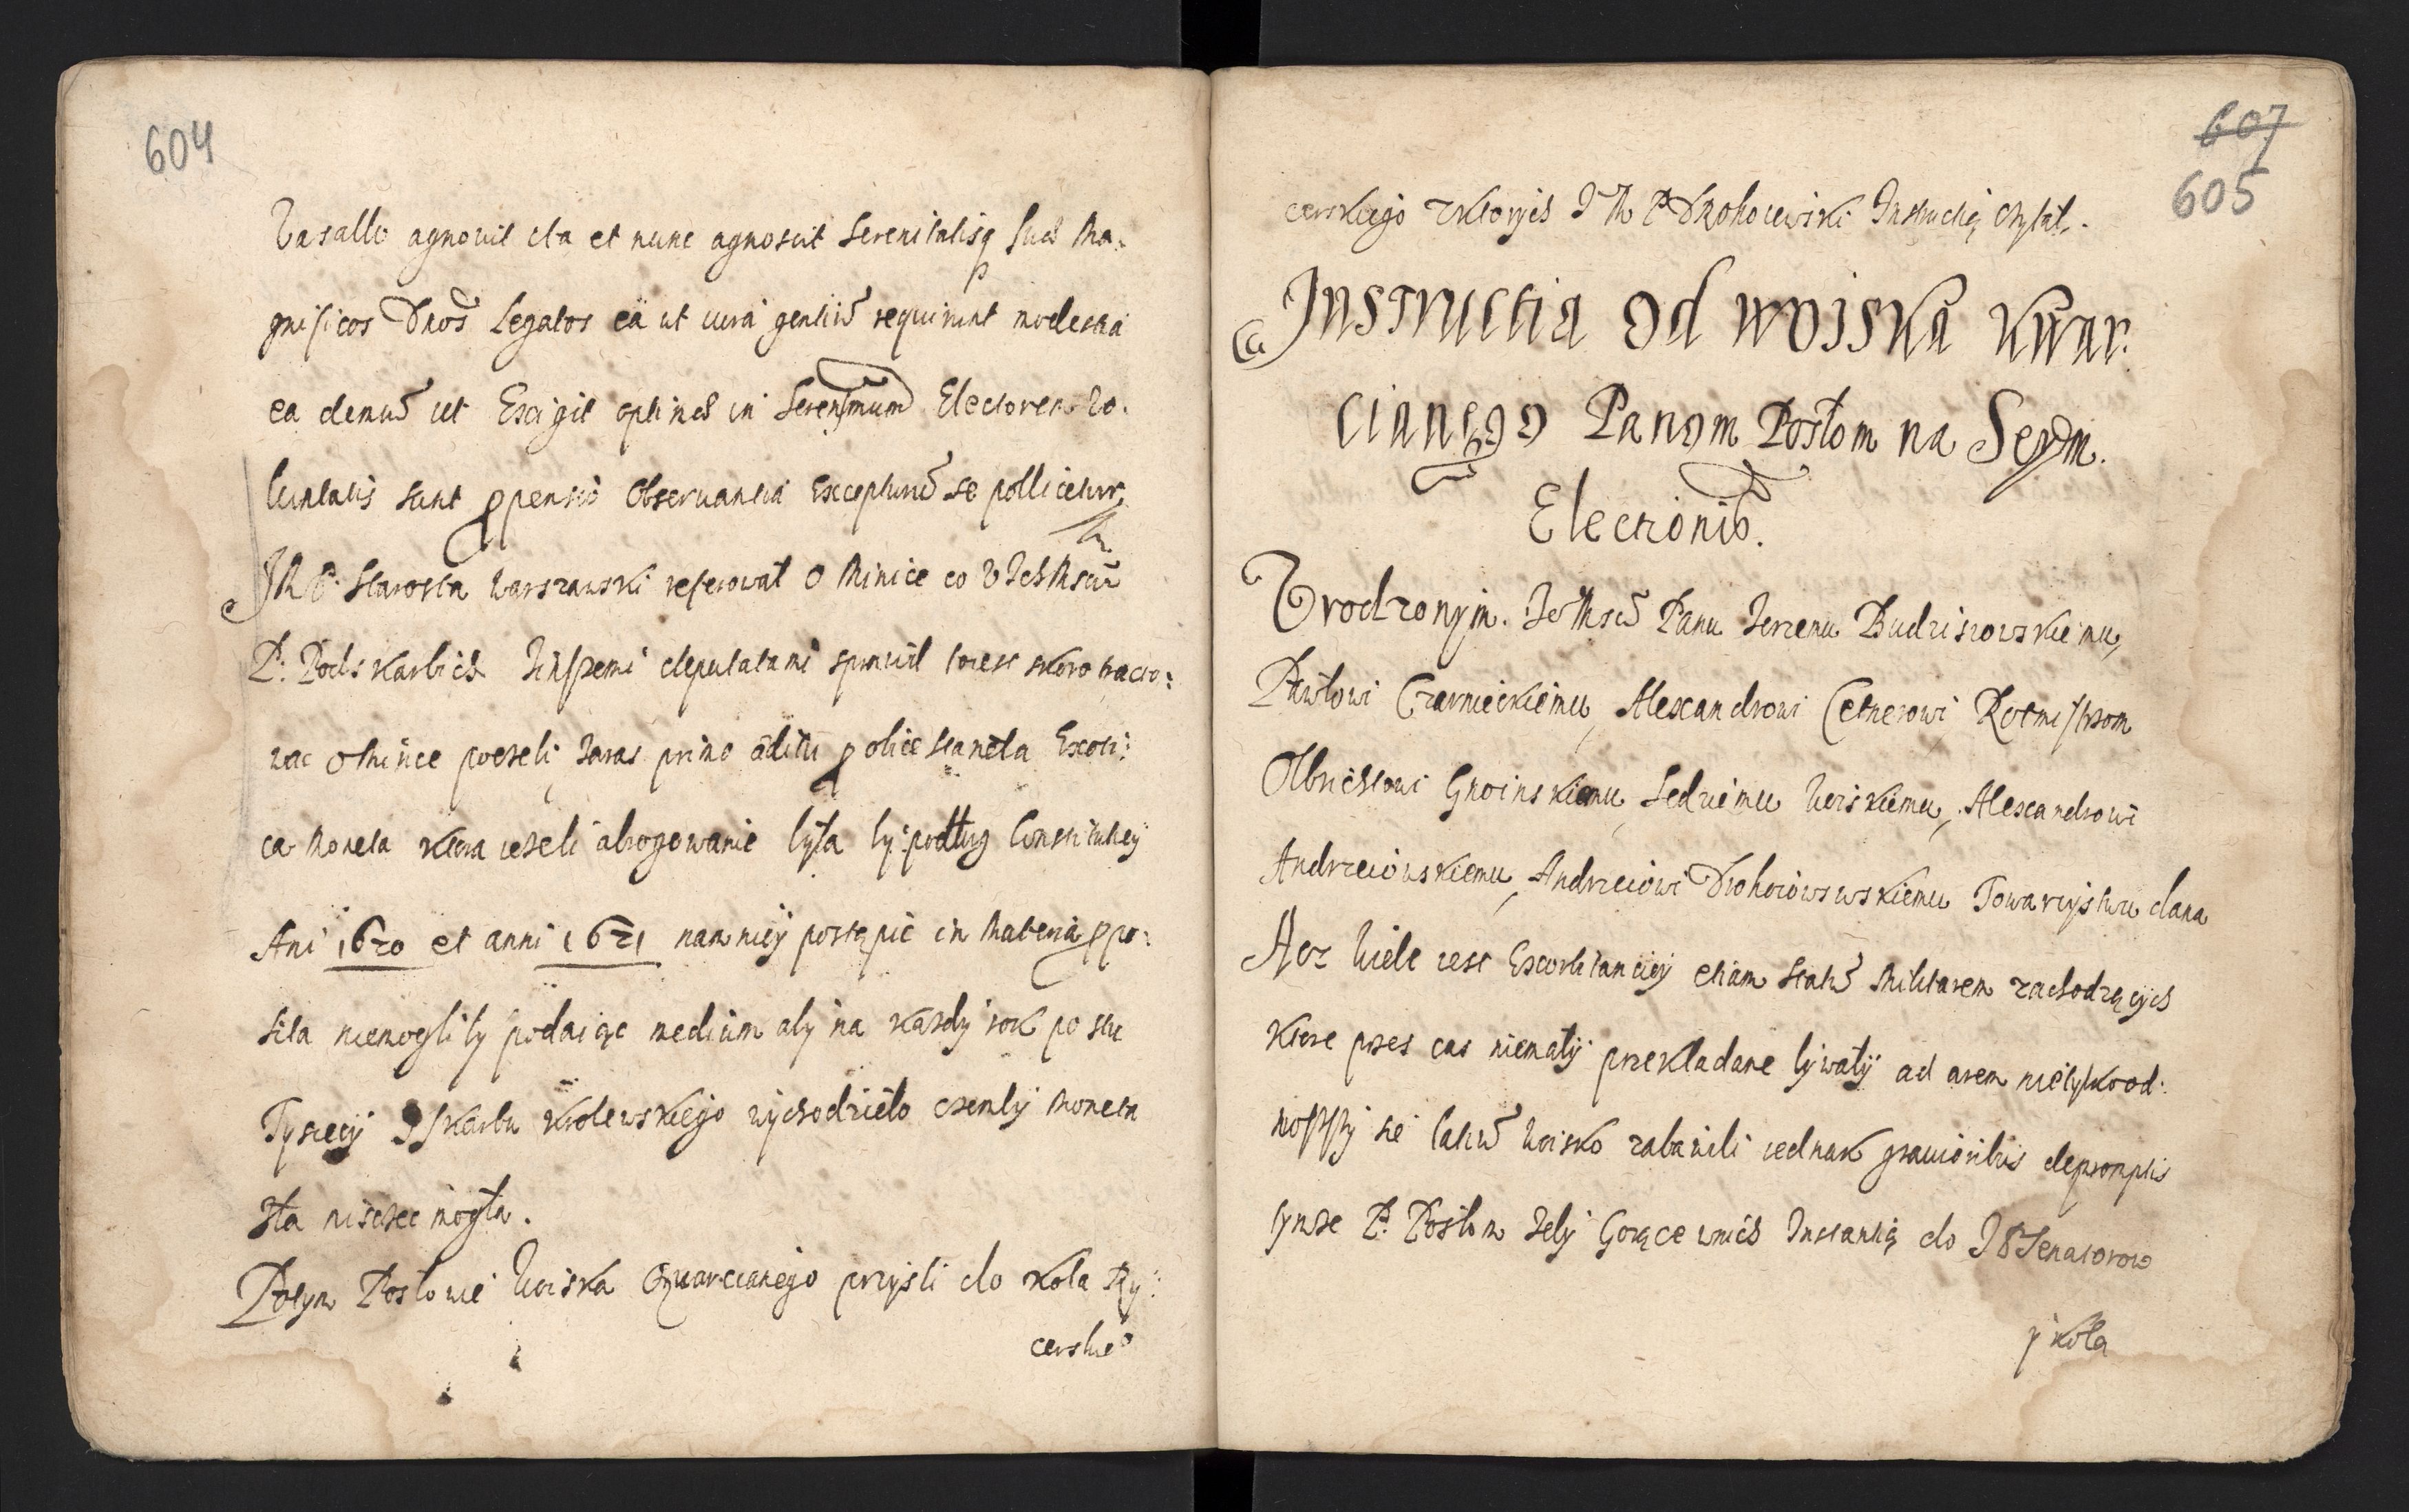 604
Vasallo agnouit ita et nunc agnoscit Serenitatisq Suæ Ma:
gnificos Dnos Legatos ea ut iura gentium requirunt modestia
ea demum ut Exigit optimes in Serenissmum Electorem Vo.
luntatis sunt ppensio Obseruantia Excepturum se pollicetur
JM P. Starosta Warszawski referował o Minice co Z IchMsciu
P. Podskarbich
deputatami sprawił iest skoro tracto:
wac o Mince poczeli zaras primo aditu
ca Moneta ktora iezeli abrogowanie była by podług Constitucÿ
Ani 1620 et anni 1621 nam niey postąpic in Materia ppo:
sita niemogli by podaiąc medium aby na każdy rok po stu
Tysięcy Z Skarbu Krolewskiego wychodzieło czemby Moneta
zła nisczec mogła.
Potym Posłowie Woiska Quarcianego przyśli do koła Ry:
cerskie
607
605
cerskiego z ktorych J M P Drohoiewski Instructią czytał.
Instructia od woiska kwar:
cianego Panom Posłom na Seym.
Electionis.
Vrodzonym. Ie Msciu Panu Ierzemu Budziszowskiemu,
Pawłowi Czarnieckiemu, Alexandrowi Cetnerowi Rotmistrzom
Olbrichtowi Gnoinskiemu, Sedziemu Woiskiemu, Alexandrowi
Andrzeiowskiemu, Andrzeiowi Drohoiowswskiemu Towarzystwu dana
Acz Wiele iest Exorbitanciey etiam statum Militarem zachodzących
ktore przes cas niemały przekładane bywały ad arem nie tylko od:
nosszy sie Woisko zabawili iednak grauioribus depromptis
tymze P. Posłom zeby Gorące wnich Instantią do I P Senatorow
y koła